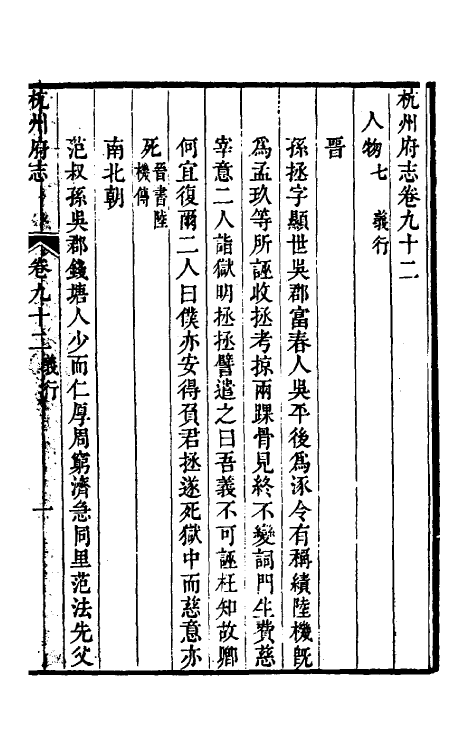 杭州府志卷九十二
人物七 義行
晉
孫拯字顯世吳郡富春人吳平後爲涿令有稱績陸機旣
爲孟玖等所誣收拯考掠兩踝骨見終不變詞門生費慈
宰意二人詣獄明拯拯譬遣之曰吾義不可誣枉知故卿
何宜復爾二人曰僕亦安得負君拯遂死獄中而慈意亦
死 晉書陸機傳
南北朝
范叔孫吳郡錢塘人少而仁厚周窮濟急同里范法先父
杭州府志 卷九十二 義行 一